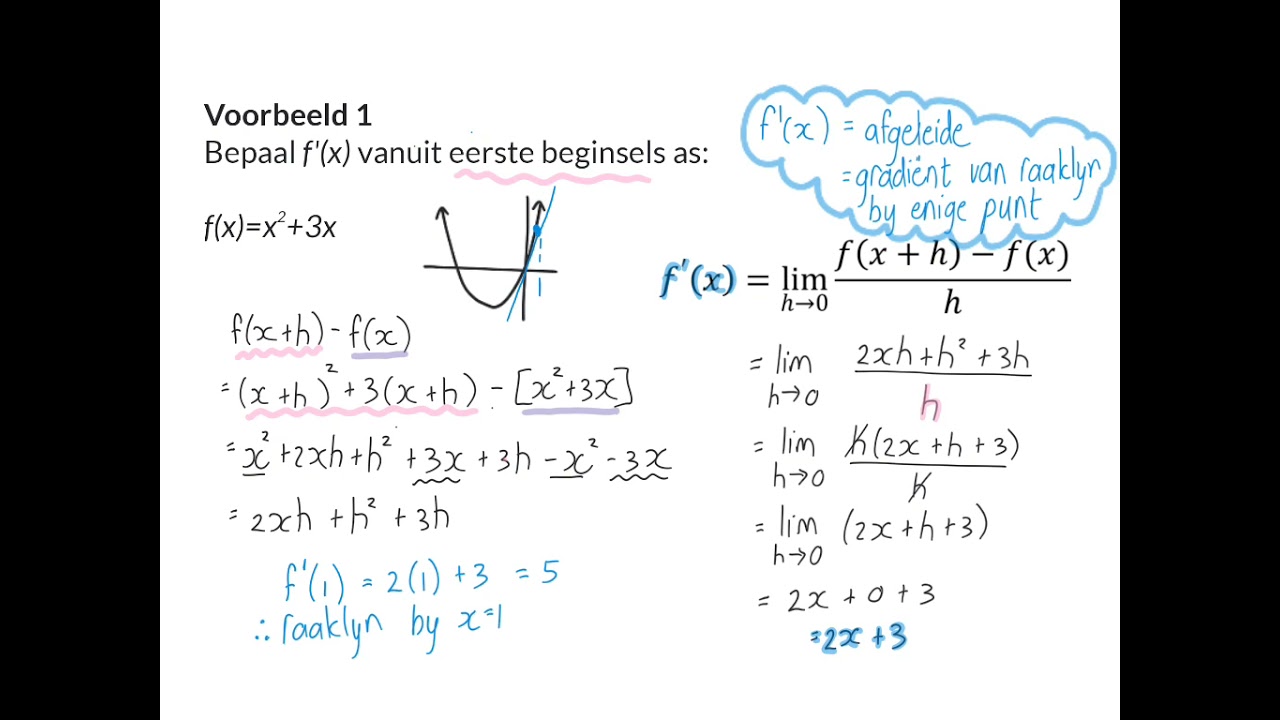 Voorbeeld 1
Bepaal f'(x) vanuit eerste beginsels as:
f(x)=x²+3x
f'(x) = afgeleide
= gradiënt van raaklyn
by enige punt
f'(x) = lim h→0 (f(x + h) − f(x))/h
f(x+h) - f(x)
= (x+h)² + 3(x+h) - [x²+3x]
= x² + 2xh + h² + 3x + 3h - x² - 3x
= 2xh + h² + 3h
f'(1) = 2(1) + 3 = 5
∴ raaklyn by x=1
= lim h→0 (2xh + h² + 3h)/h
= lim h→0 h(2x + h + 3)/h
= lim h→0 (2x + h + 3)
= 2x + 0 + 3
= 2x + 3